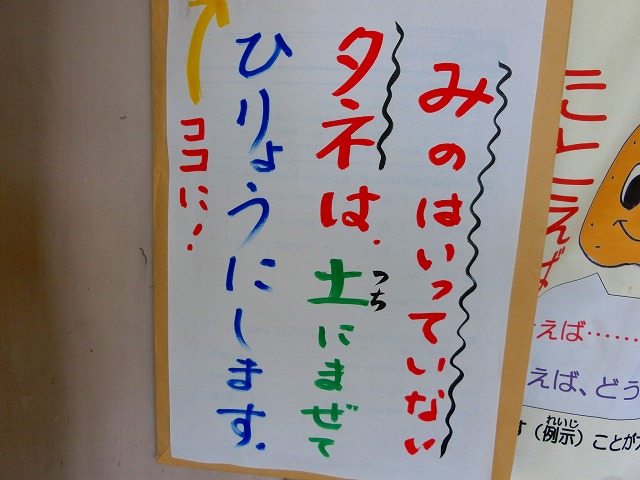 みのはいっていない
タネは、土にまぜて
つち
ひりょうにします。
ココに!
ことえば
えば……
えば、どう
す(例示)ことが
れいじ